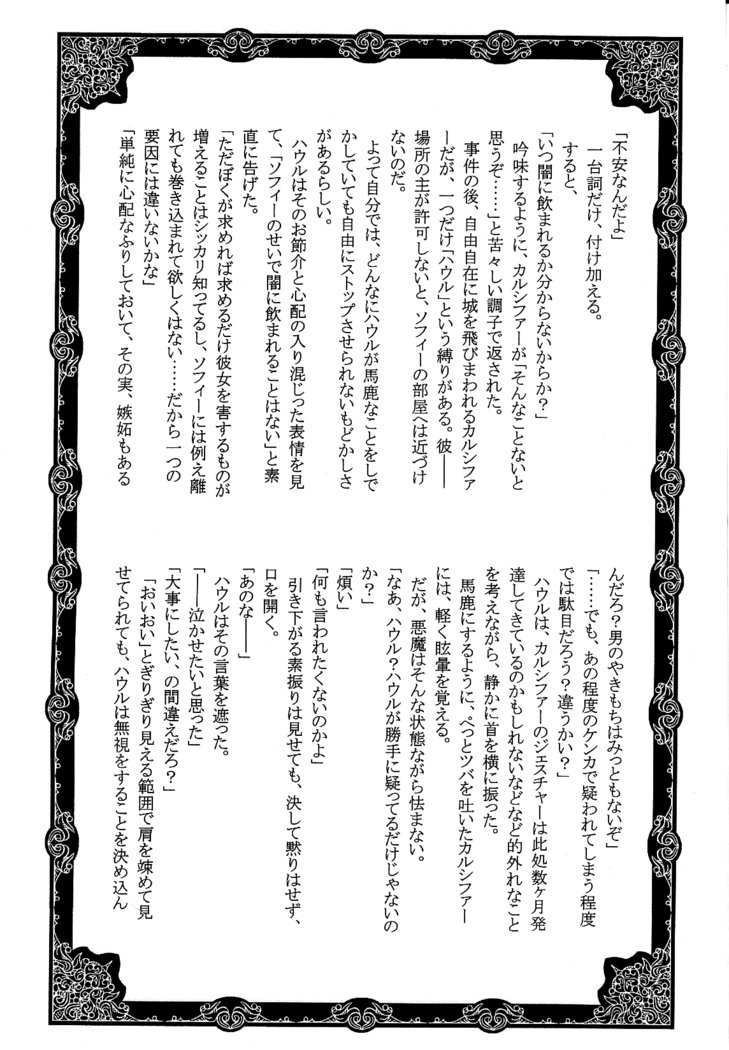 「不安なんだよ」
一台詞だけ、付け加える。
すると、
「いつ闇に飲まれるか分からないからか？」
吟味するように、カルシファーが「そんなことないと
思うぞ……」と苦々しい調子で返された。
事件の後、自由自在に城を飛びまわれるカルシファ
ーだが、一つだけ「ハウル」という縛りがある。彼――
場所の主が許可しないと、ソフィーの部屋へは近づけ
ないのだ。
よって自分では、どんなにハウルが馬鹿なことをしで
かしていても自由にストップさせられないもどかしさ
があるらしい。
ハウルはそのお節介と心配の入り混じった表情を見
て、「ソフィーのせいで闇に飲まれることはない」と素
直に告げた。
「ただぼくが求めれば求めるだけ彼女を害するものが
増えることはシッカリ知ってるし、ソフィーには例え離
れても巻き込まれて欲しくはない……だから一つの
要因には違いないかな」
「単純に心配なふりしておいて、その実、嫉妬もある
んだろ？男のやきもちはみっともないぞ」
「……でも、あの程度のケンカで疑われてしまう程度
では駄目だろう？違うかい？」
ハウルは、カルシファーのジェスチャーは此処数ヶ月発
達してきているのかもしれないなどなど的外れなこと
を考えながら、静かに首を横に振った。
馬鹿にするように、ぺっとツバを吐いたカルシファー
には、軽く眩暈を覚える。
だが、悪魔はそんな状態ながら怯まない。
「なあ、ハウル？ハウルが勝手に疑ってるだけじゃないの
か？」
「煩い」
「何も言われたくないのかよ」
引き下がる素振りは見せても、決して黙りはせず、
口を開く。
「あのな――」
ハウルはその言葉を遮った。
「――泣かせたいと思った」
「大事にしたい、の間違えだろ？」
「おいおい」とぎりぎり見える範囲で肩を竦めて見
せてられても、ハウルは無視をすることを決め込ん